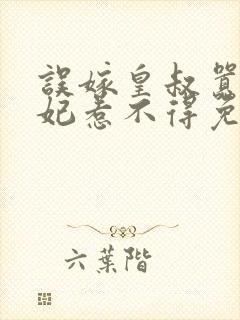 誤嫁皇叔囂
妃惹不得免
六葉階